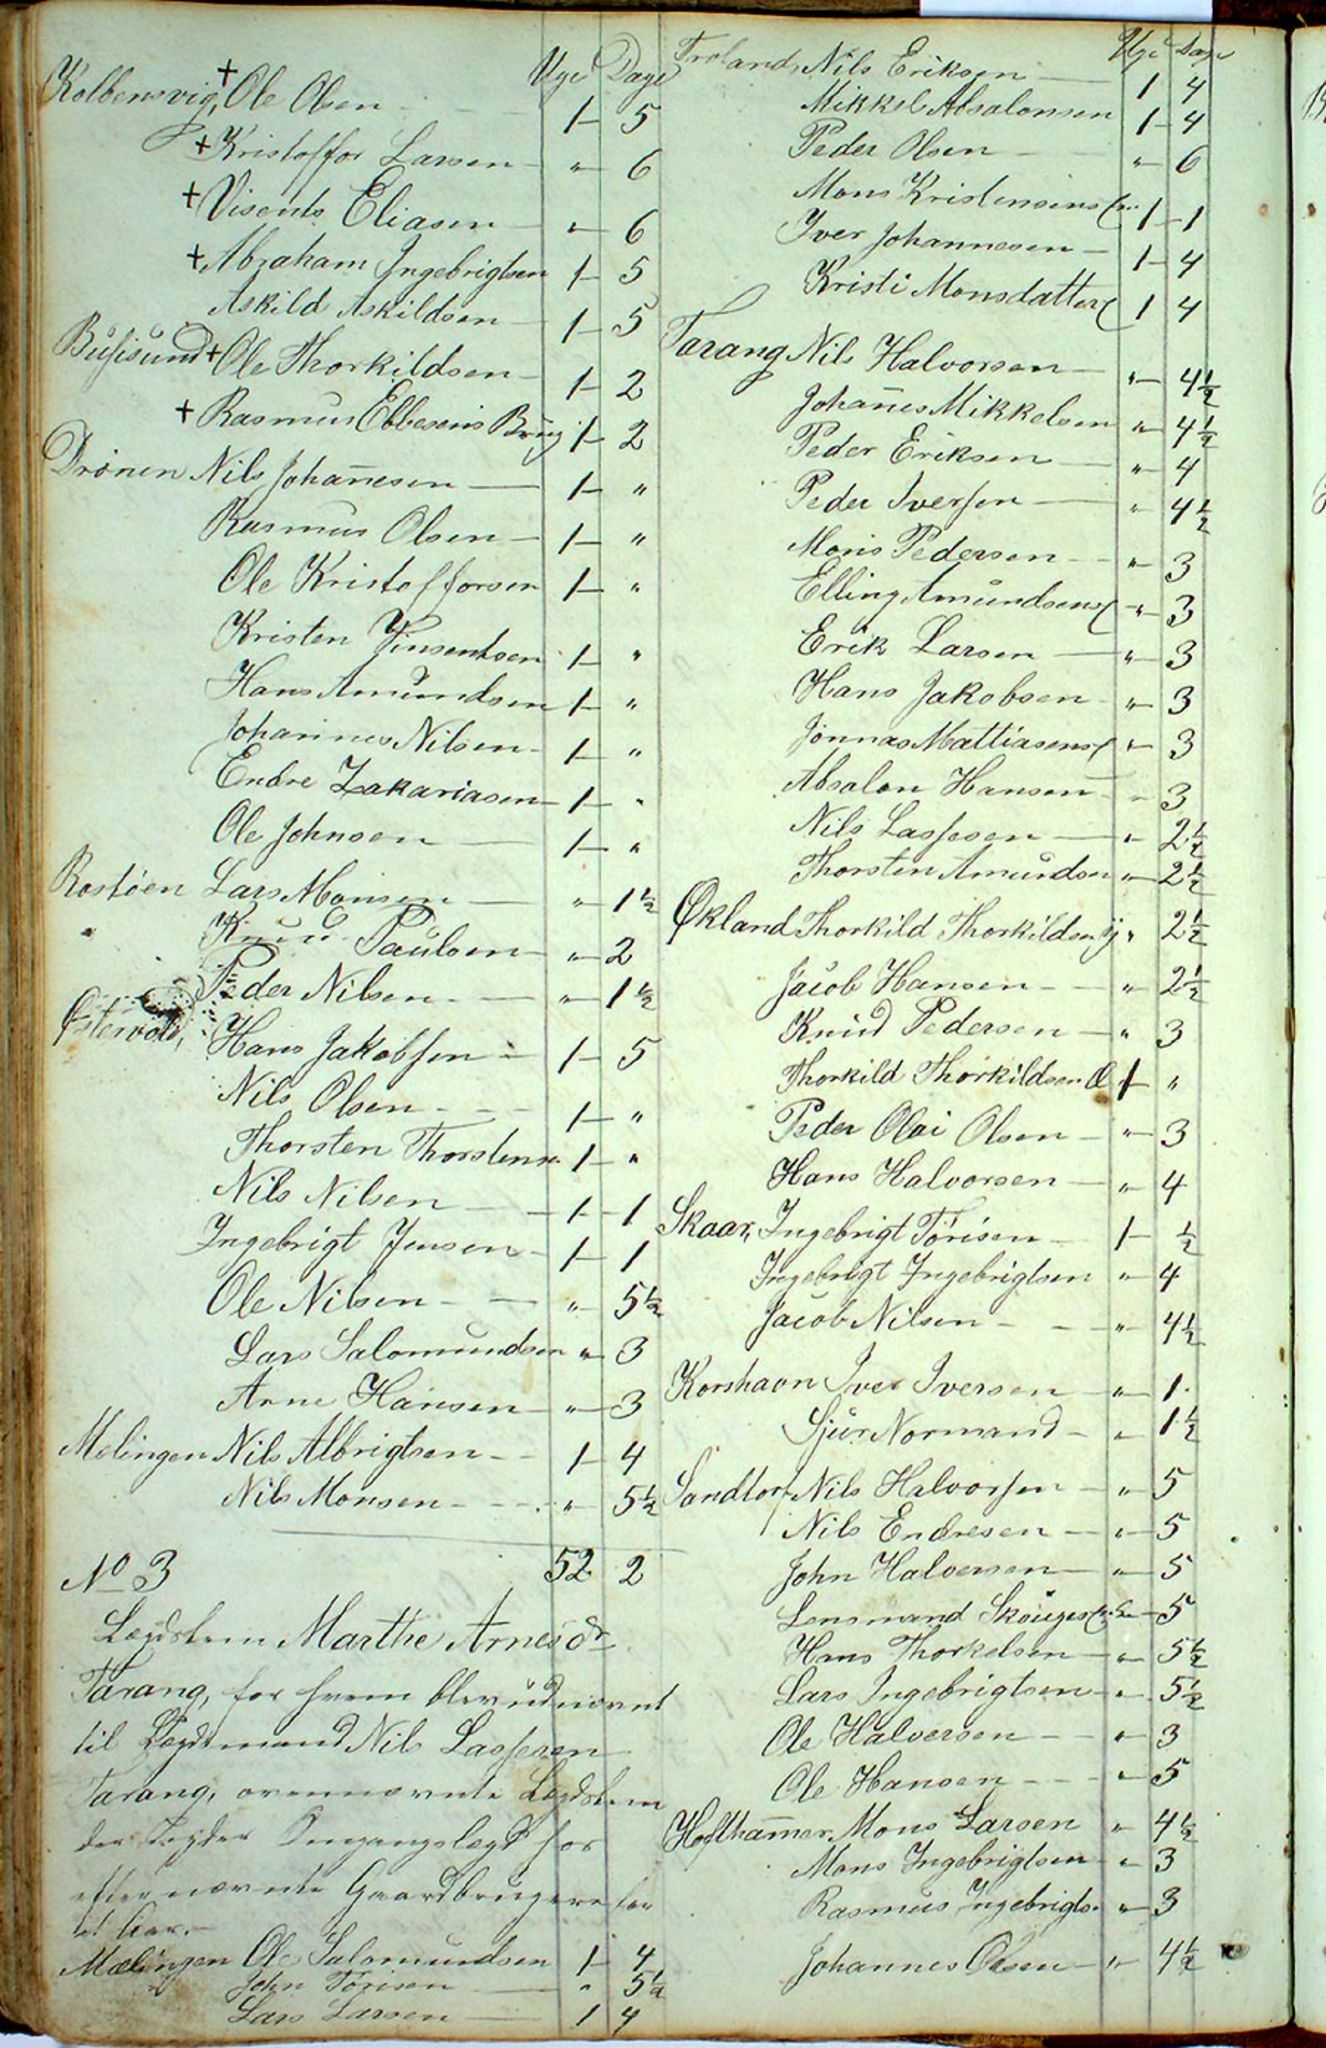 Uge Dage
Kolbensvig, + Ole Olsen 1 - 5
+ Kristoffor Larsen - " - 6
+ Visents Eliasen - " - 6
+ Abraham Ingebrigtsen 1 - 5
Askild Askildsen - 1 - 5
+ Ole Thorkildsen - 1 - 2
+ Rasmus Ebbesens Brug 1 - 2
Drönen Nils Johan̄esen - 1 - "
Rasmus Olsen - 1 - "
Ole Kristofforsen 1 - "
Kristen Vinsentsen 1 - "
Hans Amundsen 1 - "
Johannes Nilsen - 1 - "
Endre Zakariasen - 1 - "
Ole Johnsen - 1 - "
Rostöen Lars Monsen - " - 1½
" Knud Paulsen - " - 2
Peder Nilsen - " - 1½
Östervold, Hans Jakobsen - 1 - 5
Nils Olsen - - - 1 - "
Thorsten Thorstens. 1 - "
Nils Nilsen - 1 - 1
Ingebrigt Jensen - 1 - 1
Ole Nilsen - - " - 5½
Lars Salomundsen " - 3
Arne Hansen - " - 3
Melingen Nils Albrigtsen - - 1 - 4
Nils Monsen - - - " - 5½
52 2
No 3
Lægdslem Marthe Arnesdr
Tarang, for hvem blev udnævnt
til Lægdsmand Nils Lassesen
Tarang, ovennævnte Lægdslem
der Omgangslægd for
efternævnte Gaardbrugere for
et Aar. -
Mælingen Ole Salomundsen 1 - 4
John Törisen - " 5½
Lars Larsen - 1 4
Uge Dage
Troland, Nils Eriksen - 1 4
Mikkel Absalonsen 1 - 4
Peder Olsen - " - 6
Mons Kristensens 1 - 1
Iver Johannesen - 1 - 4
Kristi Monsdatter 1 4
Tarang Nils Halvorsen - " - 4½
Johan̄es Mikkelsen " - 4½
Peder Eriksen - " - 4
Peder Iversen - " - 4½
Mons Pedersen - " - 3
Elling Amundsens " - 3
Erik Larsen - " - 3
Hans Jakobsen - " - 3
Jönnas Mattiasens " - 3
Absalon Hansen - " - 3
Nils Lassesen - " - 2½
Thorsten Amundsen " - 2½
Økland Thorkild Thorkildsen y " 2½
Jacob Hansen - - " 2½
Knud Pedersen - " 3
Thorkild Thorkildsen Æ 1 - "
Peder Olai Olsen - " - 3
Hans Halvorsen - " - 4
Skaar, Ingebrigt Törisen - 1 - ½
Ingebrigt Ingebrigtsen " - 4
Jacob Nilsen - - " - 4½
Korshavn Iver Iversen - " - 1
Sjur Normand - " - 1½
Sandtorf Nils Halvorsen - " - 5
Nils Endresen - " - 5
John Halversen - " - 5
Lensmand Skouges - 5
Hans Thorkelsen - " - 5½
Lars Ingebrigtsen - " - 5½
Ole Halversen - - " - 3
Ole Hansen - - - " - 5
Hoftham̄er Mons Larsen " 4½
Mons Ingebrigtsen - " 3
Rasmus Ingebrigts. " - 3
Johannes Olsen - " - 4½